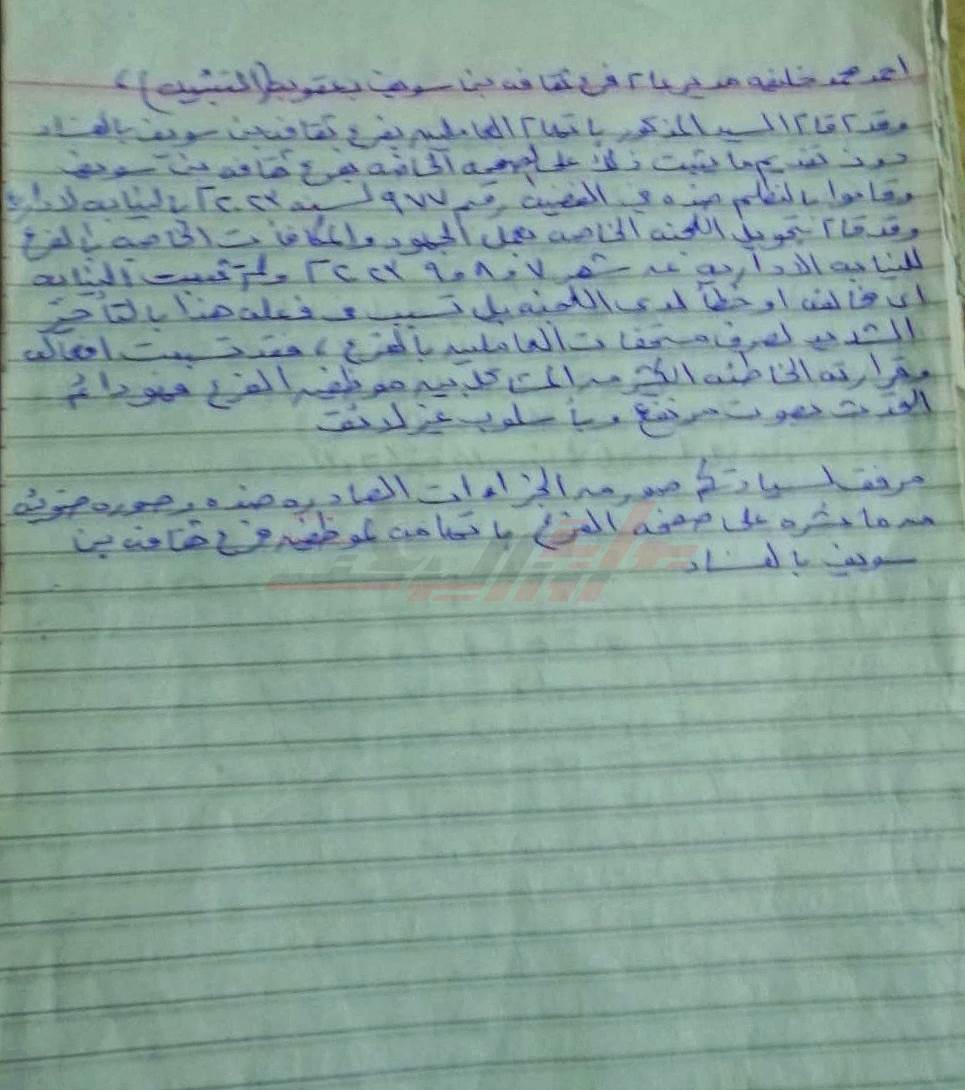 احمد محمد خليفه مدير عام فرع ثقافه بنى سويف بعقوبة (التنبيه)،
وقد قام السيد المذكور باتهام العاملين بفرع ثقافة بنى سويف بالفساد
دون تقديم ما يثبت ذلك على الصفحه الخاصه بفرع ثقافه بنى سويف
وقاموا بالتظلم منه فى القضية رقم ٩٧٧ لسنه ٢٠٢٣ بالنيابه الاداريه
وقد قام بتحويل اللجنه الخاصه بعمل الجهود والمكافات الخاصه بالفرع
للنيابه الاداريه عن شهر ٧ و ٨ و ٩ ٢٠٢٣ ولم تثبت النيابه
اى مخالفه او خطأ لدى اللجنه بل تسبب فى فعله هذا بالتأخير
الشديد لصرف مستحقات العاملين بالفرع، فقد تسببت افعاله
وقراراته الخاطئه الكثير من المشاكل بين موظفين الفرع فهو دائم
التحدث بصوت مرتفع وبأسلوب غير لائق
مرفق لسيادتكم صور من الجزاءات الصادره منه وصوره ضوئيه
من ما نشره على صفحه الفرع باتهامه لموظفين فرع ثقافه بنى
سويف بالفساد